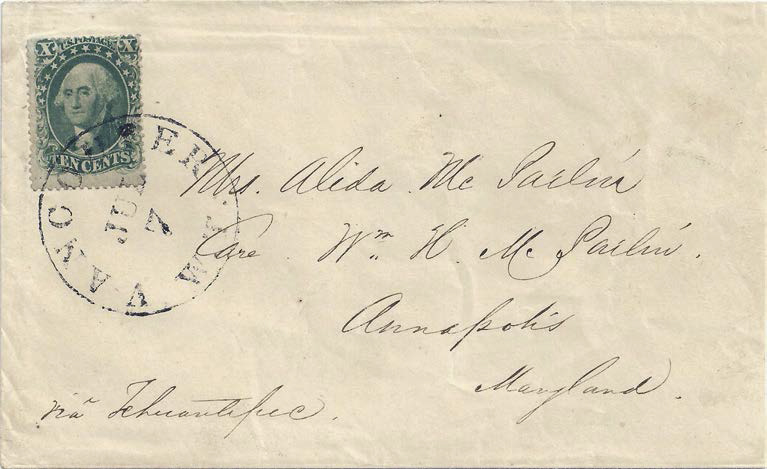 X U.S. POSTAGE X
TEN CENTS
VANCOUVER
JUL
7
Mrs. Alida Mc Parlin
Care Wm. H. Mc Parlin.
Annapolis
Maryland.
via Tehuantepec.